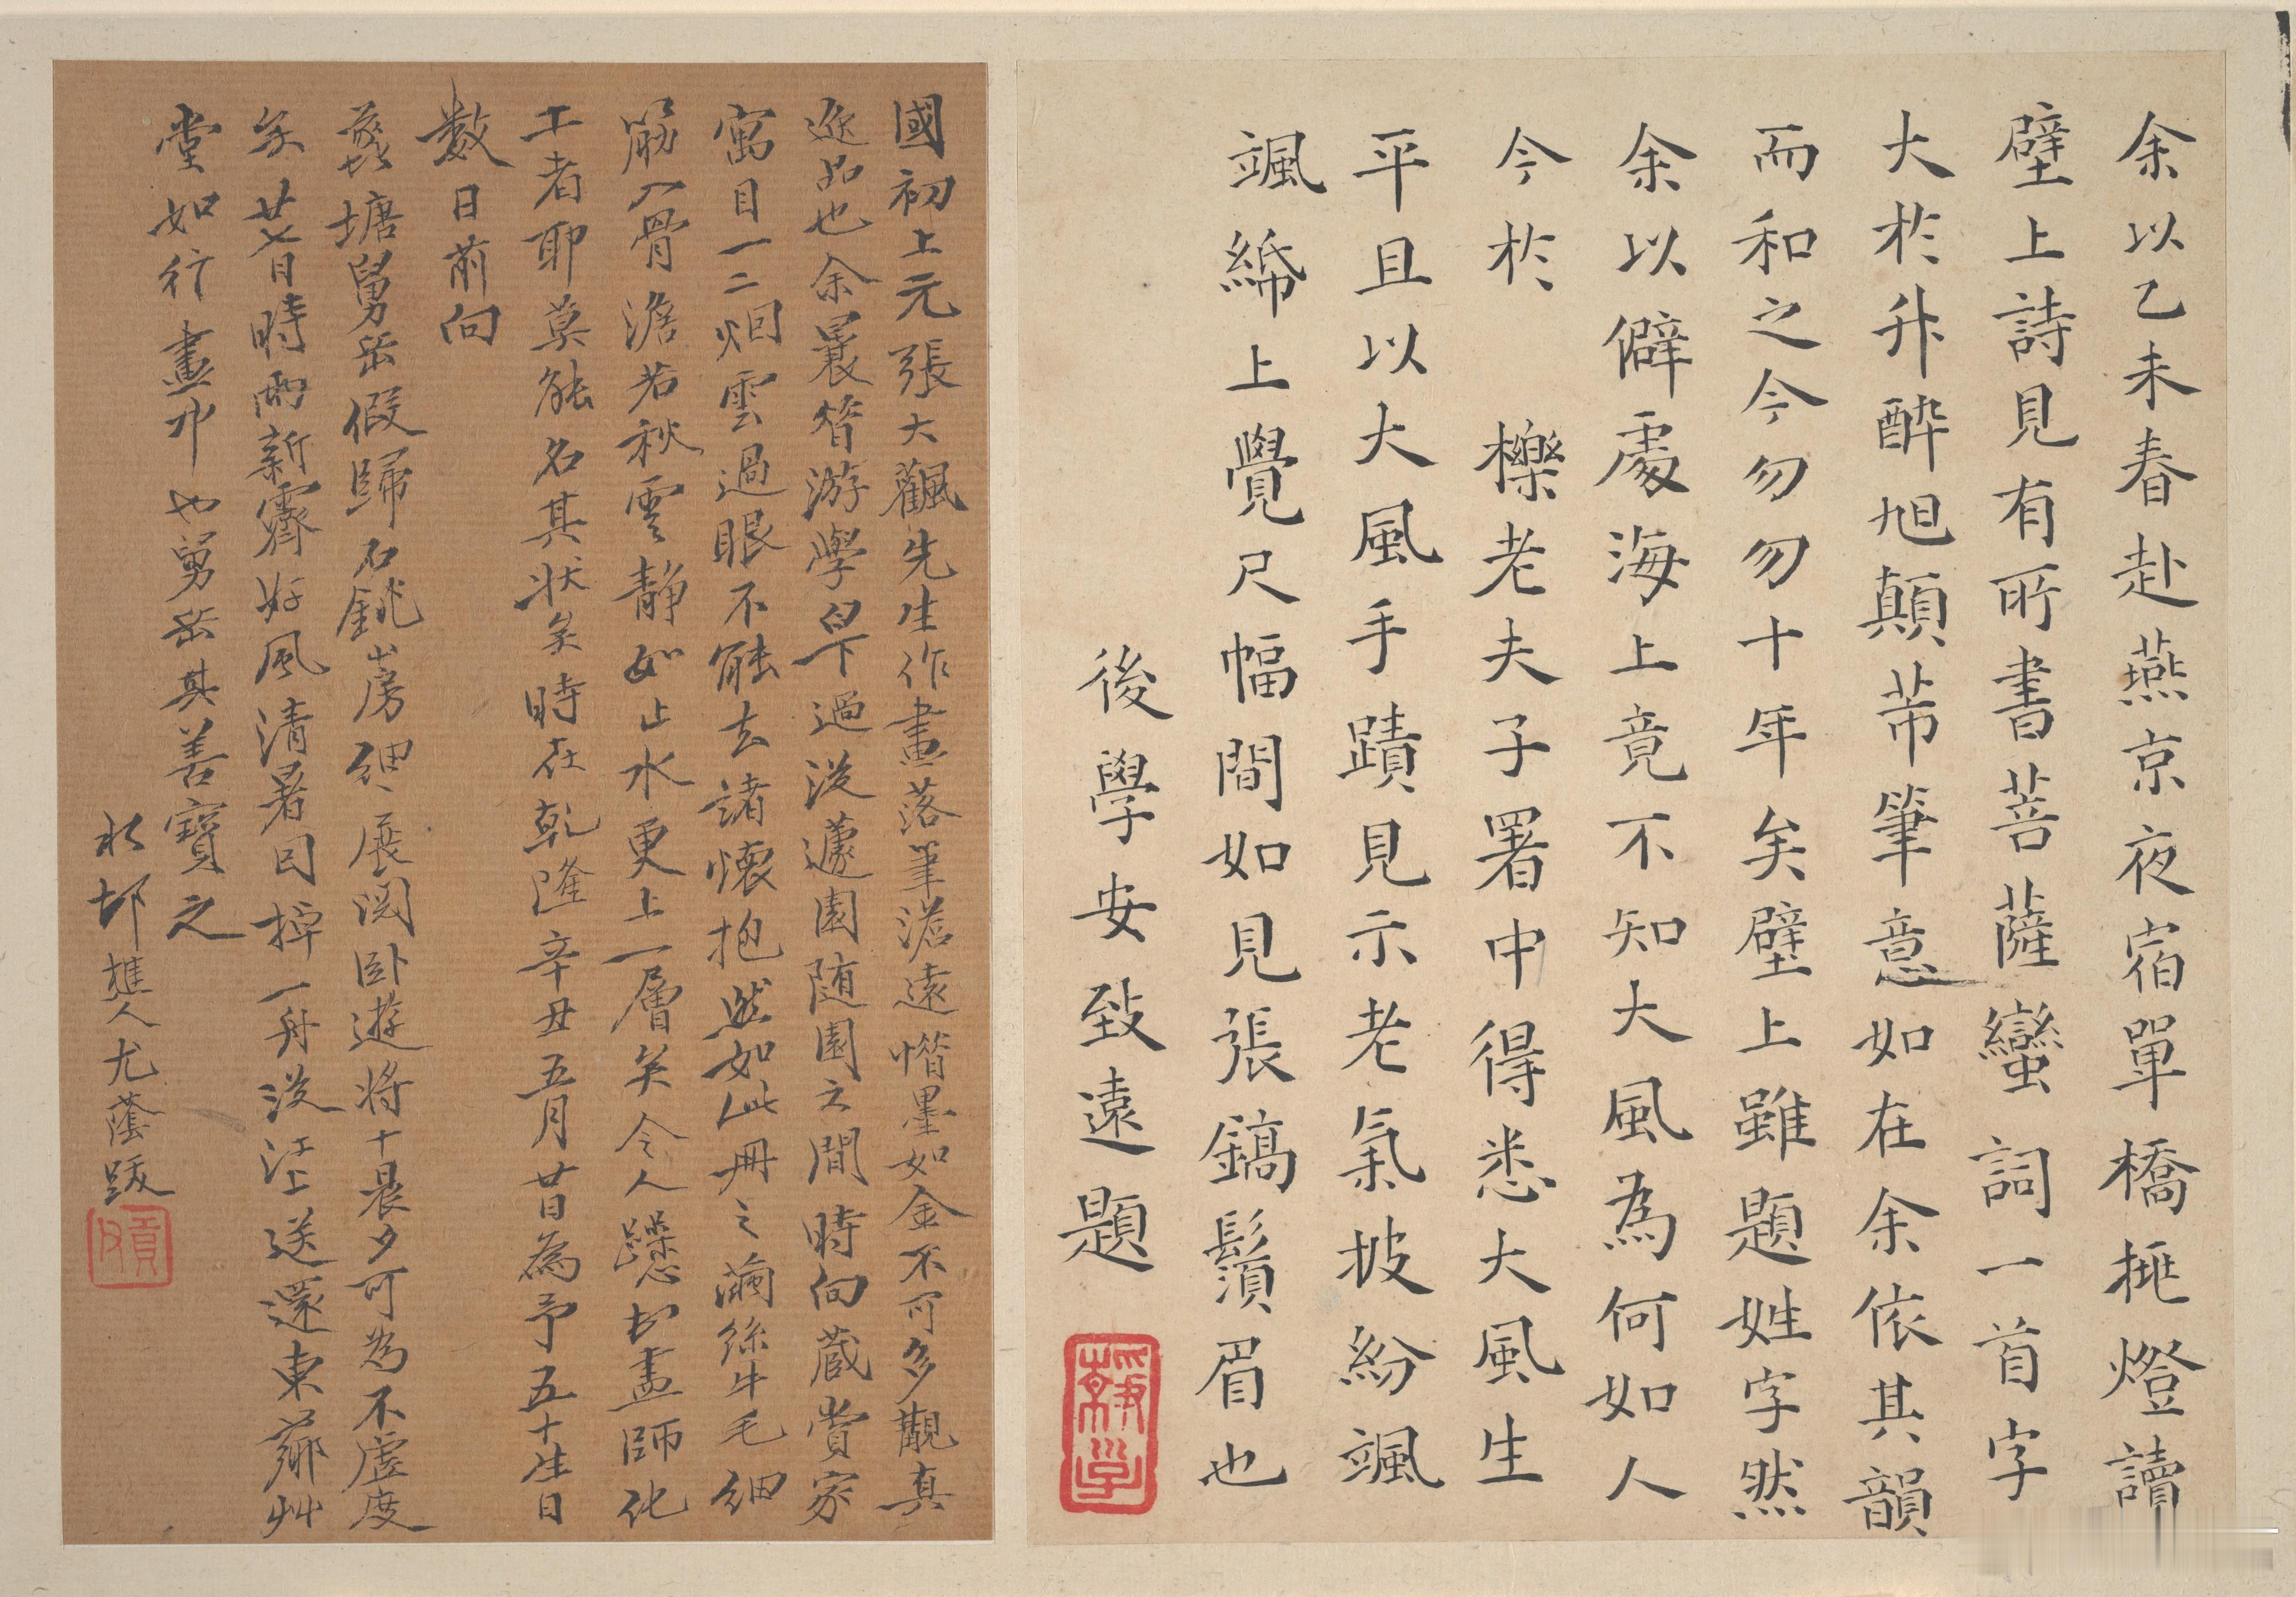 余以乙未春赴燕京夜宿單橋挑燈讀
壁上詩見有所書菩薩蠻詞一首字
大於升醉旭顛芾筆意如在余依其韻
而和之今勿勿十年矣壁上雖題姓字然
余以僻處海上竟不知大風為何如人
今於 櫟老夫子署中得悉大風生
平且以大風手蹟見示老氣披紛颯
颯綈上覺尺幅間如見張鎬鬚眉也
後學安致遠題
靜子
國初上元張大風先生作畫落筆澹遠惜墨如金不可多觀真
逸品也余曩嵗游學白下過從蘧園随園之間時向蔵賞家
寓目一二烟雲過眼不能去諸懷抱然如此冊之繭絲牛毛細
筋入骨澹若秋雲靜如止水更上一層矣令人躁心如盡師化
工者耶莫能名其狀矣時在乾隆辛丑五月廿日為予五十生日
數日前向
塘舅岳假歸石銚山房細細展閱卧遊將十晨夕可為不虛度
矣廿昔時雨新霽好風清暑因棹一舟從江上送還東薌艸
堂如行畫中也舅岳其善寶之
水邨樵人尤蔭跋
貢父